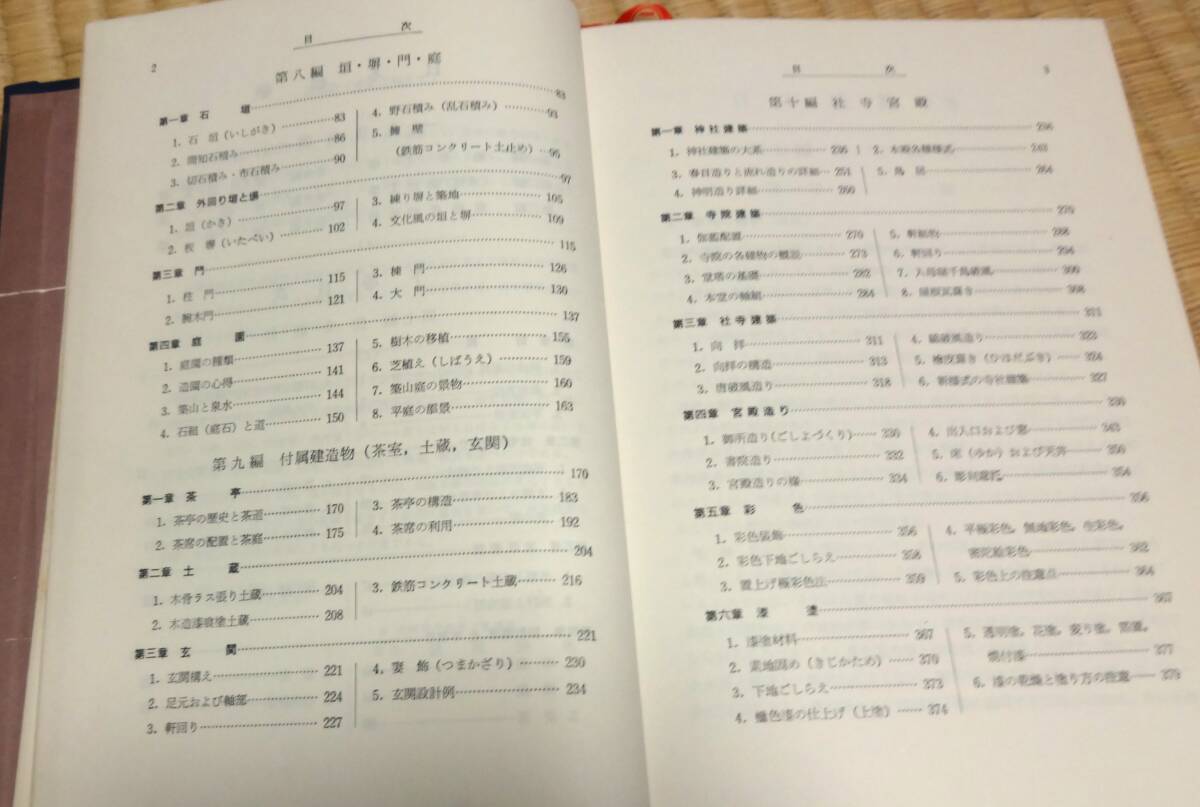 目 次
2
第八編 垣・塀・門・庭
第一章 石 垣 83
1. 石 垣(いしがき) 83
2. 間知石積み 86
3. 切石積み・布石積み 90
4. 野石積み(乱石積み) 93
5. 擁 壁
(鉄筋コンクリート土止め) 95
第二章 外回り垣と塀 97
1. 垣(かき) 97
2. 板 塀(いたべい) 102
3. 練り塀と築地 105
4. 文化風の垣と塀 109
第三章 門 115
1. 柱 門 115
2. 腕木門 121
3. 棟 門 126
4. 大 門 130
第四章 庭 園 137
1. 庭園の種類 137
2. 造園の心得 141
3. 築山と泉水 144
4. 石組(庭石)と道 150
5. 樹木の移植 155
6. 芝植え(しばうえ) 159
7. 築山庭の景物 160
8. 平庭の部景 163
第九編 付属建造物(茶室,土蔵,玄関)
第一章 茶 亭 170
1. 茶亭の歴史と茶道 170
2. 茶席の配置と茶庭 175
3. 茶亭の構造 183
4. 茶席の利用 192
第二章 土 蔵 204
1. 木骨ラス張り土蔵 204
2. 木造漆喰塗土蔵 208
3. 鉄筋コンクリート土蔵 216
第三章 玄 関 221
1. 玄関構え 221
2. 足元および軸部 224
3. 軒回り 227
4. 妻 飾(つまかざり) 230
5. 玄関設計例 234
目 次
3
第十編 社 寺 宮 殿
第一章 神社建築 236
1. 神社建築の大系 236
2. 本殿各種様式 243
3. 春日造りと流れ造りの詳細 251
4. 神明造り詳細 260
5. 鳥 居 264
第二章 寺院建築 270
1. 伽藍配置 270
2. 寺院の各建物の概説 273
3. 堂塔の基礎 282
4. 本堂の軸組 284
5. 軒組物 288
6. 軒回り 294
7. 入母屋千鳥破風 300
8. 屋根瓦葺き 308
第三章 社寺建築 311
1. 向 拝 311
2. 向拝の構造 313
3. 唐破風造り 318
4. 縋破風造り 323
5. 檜皮葺き(ひはだぶき) 324
6. 新様式の寺社建築 327
第四章 宮殿造り 330
1. 御所造り(ごしょづくり) 330
2. 書院造り 332
3. 宮殿造りの様 334
4. 出入口および窓 343
5. 床(ゆか)および天井 350
6. 彫刻 354
第五章 彩 色 356
1. 彩色装飾 356
2. 彩色下地ごしらえ 358
3. 置上げ極彩色法 359
4. 平極彩色,無地彩色,生彩色,
密陀絵彩色 362
5. 彩色上の注意点 364
第六章 漆 塗 367
1. 漆塗材料 367
2. 素地固め(きじかため) 370
3. 下地ごしらえ 373
4. 蠟色漆の仕上げ(上塗) 374
5. 透明塗,花塗,変り塗,箔置,
焼付漆 377
6. 漆の乾燥と塗り方の注意 379